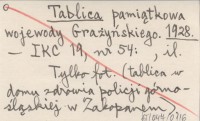 Tablica pamiątkowa
wojewody Grażyńskiego. 1928.
— IKC 19, nr 54: , il.
Tylko fot. (tablica w
domu zdrowia policji górno-
śląskiej w Zakopanem)